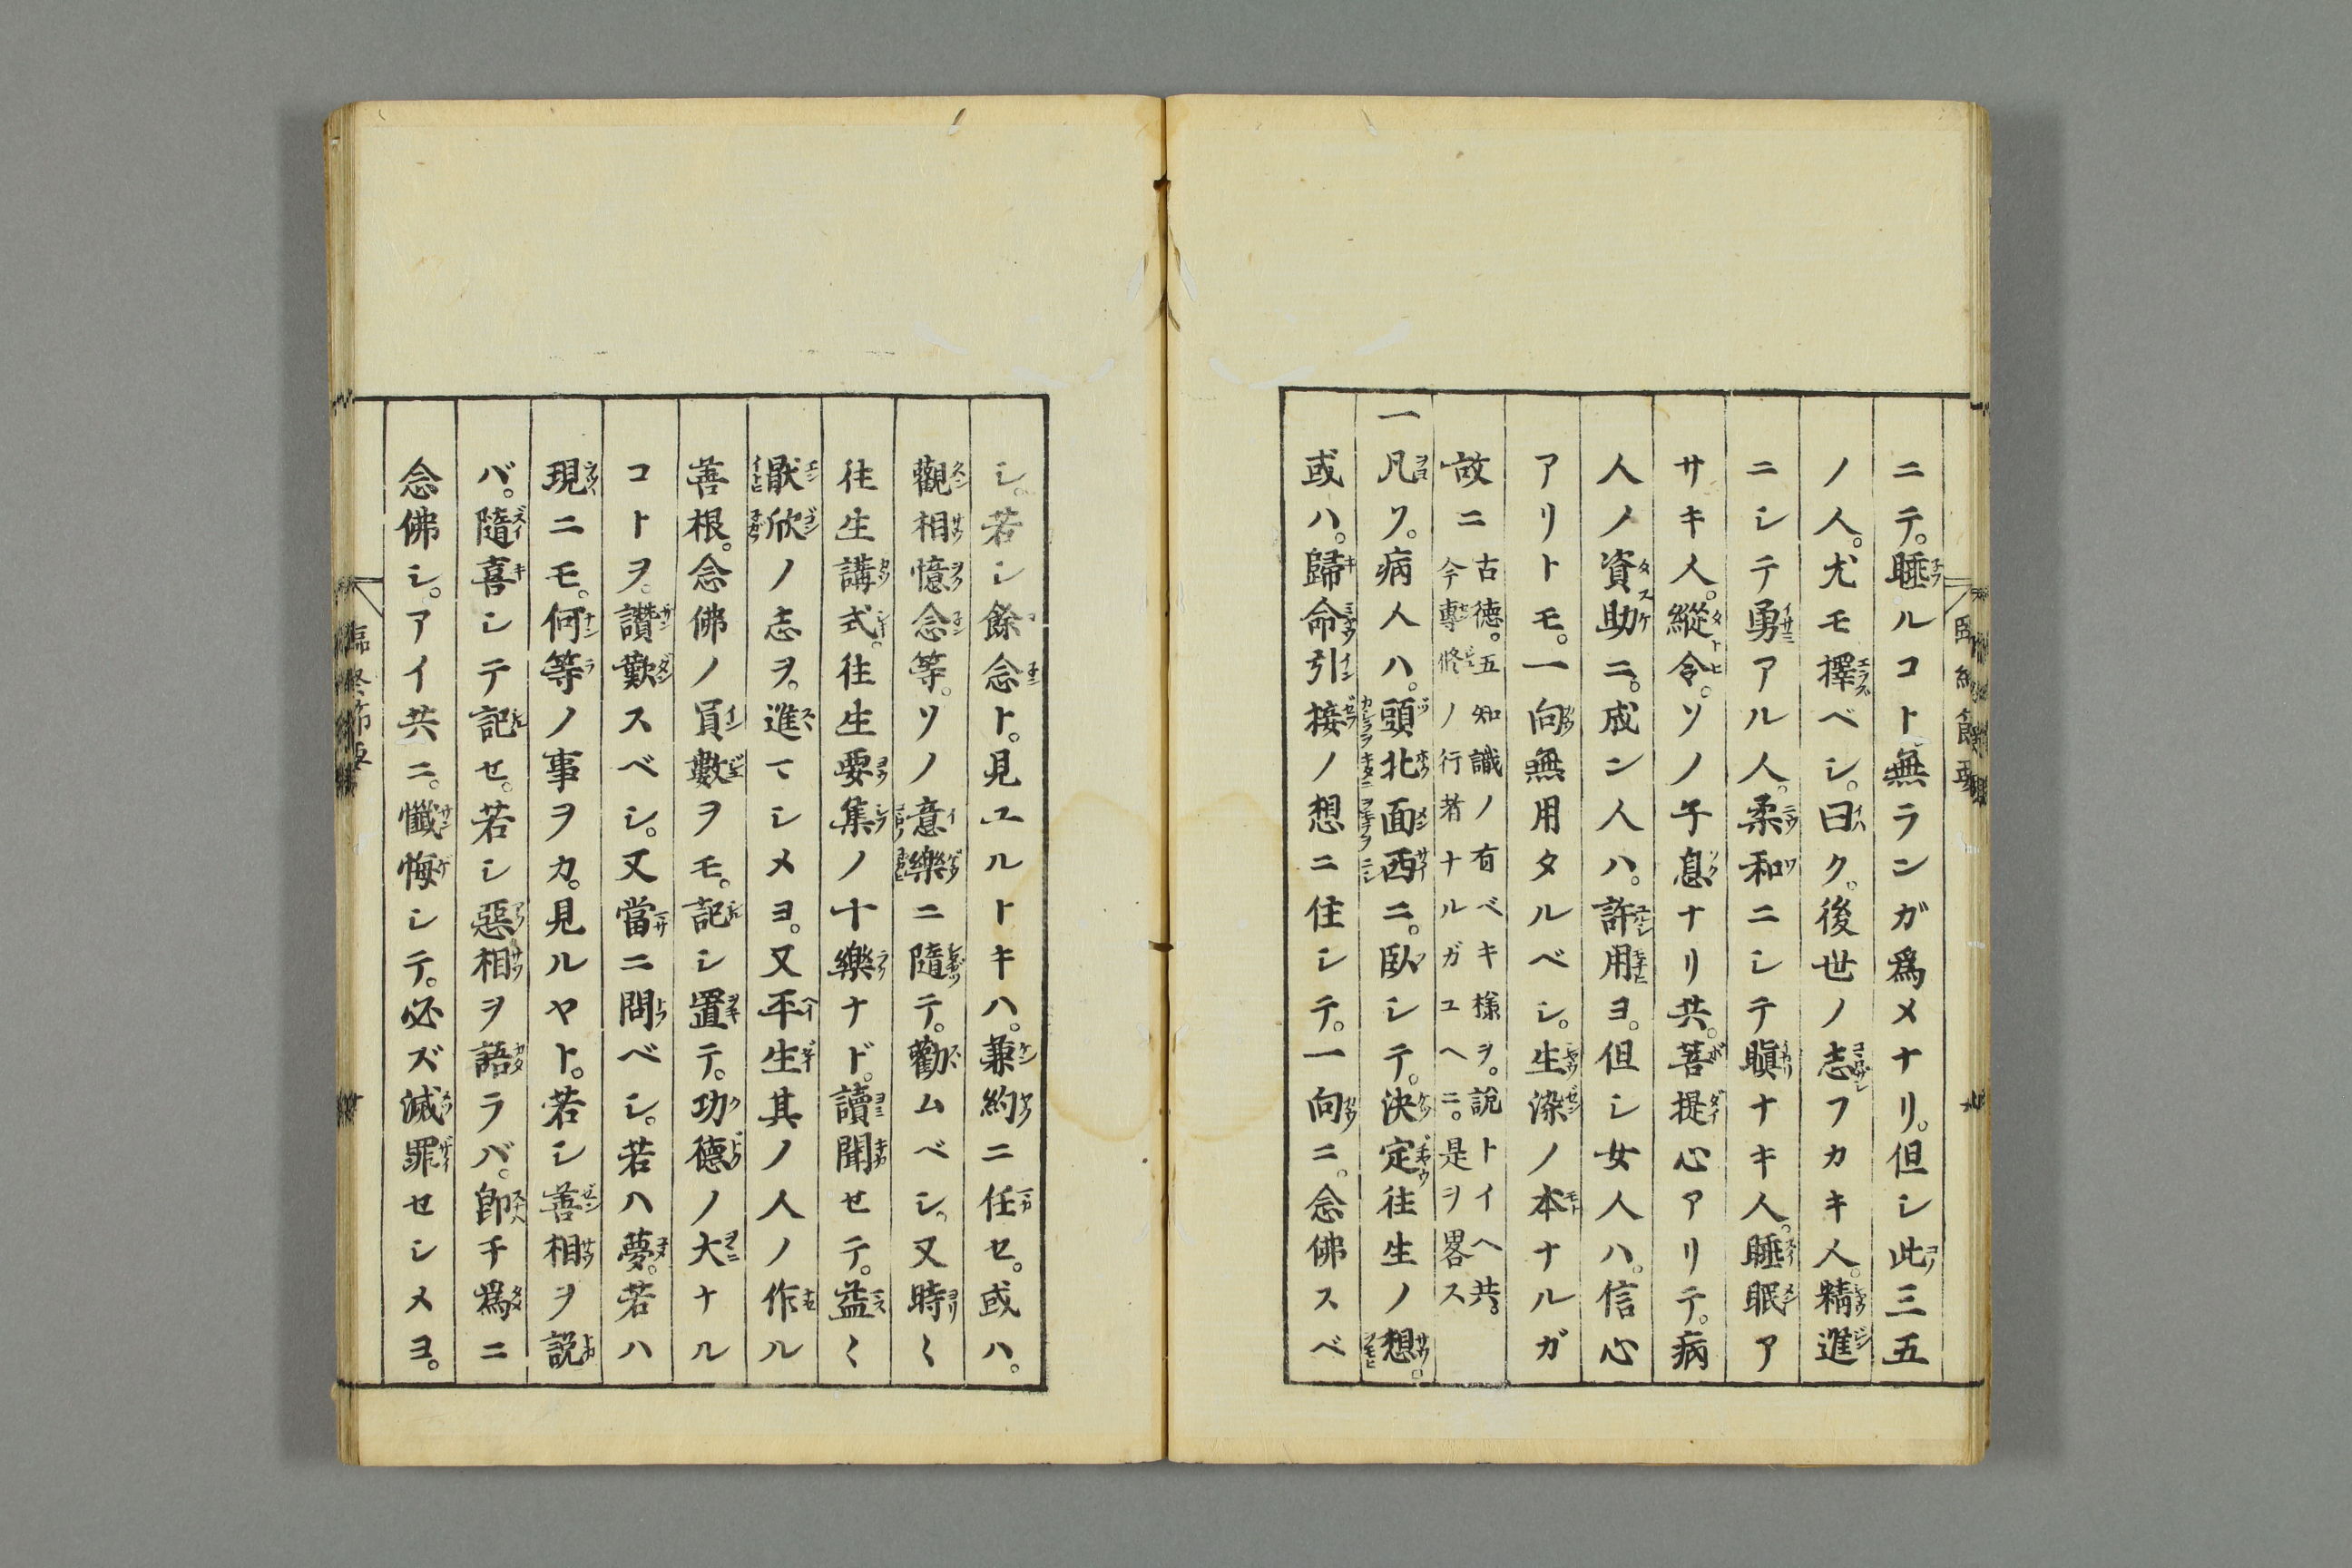 ニテ。睡ルコト無ランガ爲メナリ。但シ此三五
ノ人。尤モ擇ベシ。曰ク。後世ノ志フカキ人。精進
ニシテ勇アル人。柔和ニシテ瞋ナキ人。睡眠ア
サキ人。縱令。ソノ子息ナリ共。菩提心アリテ。病
人ノ資助ニ。成ン人ハ。許用ヨ。但シ女人ハ。信心
アリトモ。一向無用タルベシ。生染ノ本ナルガ
故ニ古德。五知識ノ有ベキ樣ヲ。説トイヘ共。
今專修ノ行者ナルガユヘニ。是ヲ畧ス
一凡ソ。病人ハ。頭北面西ニ。臥シテ。決定往生ノ想。
或ハ。歸命引接ノ想ニ住シテ。一向ニ。念佛スベ
シ。若シ餘念ト。見ユルトキハ。兼約ニ任セ。或ハ。
觀相憶念等。ソノ意樂ニ隨テ。勸ムベシ。又時〱
往生講式。往生要集ノ十樂ナド。讀聞セテ。益〱
厭欣ノ志ヲ。進マシメヨ。又平生其ノ人ノ作ル
善根。念佛ノ員數ヲモ。記シ置テ。功德ノ大ナル
コトヲ。讚歎スベシ。又當ニ問ベシ。若ハ夢。若ハ
現ニモ。何等ノ事ヲカ。見ルヤト。若シ善相ヲ説
バ。隨喜シテ記セ。若シ惡相ヲ語ラバ。即チ爲ニ
念佛シ。アイ共ニ。懺悔シテ。必ズ滅罪セシメヨ。
臨終節要